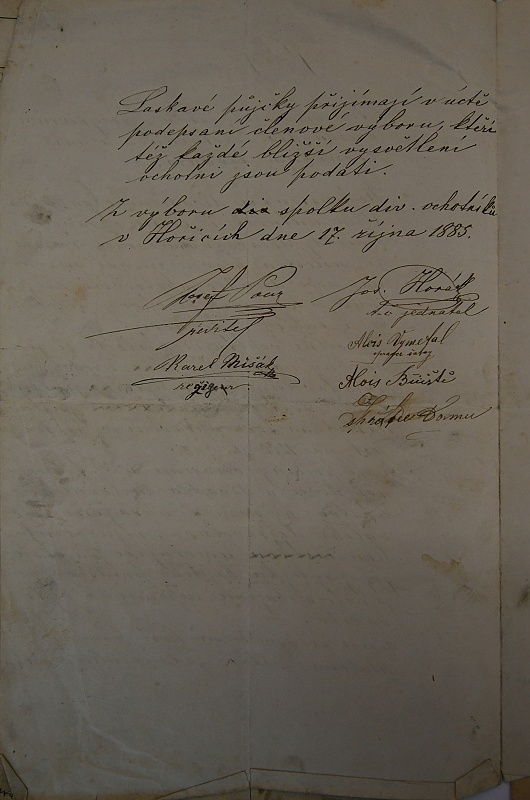 Laskavé půjčky přijímají v úctě
podepsaní členové výboru, kteří
též každé bližší vysvětlení
ochotni jsou podati.
Z výboru spolku div. ochotníků
v Hořicích dne 17. října 1885.
Josef
Jos. Horák
t. č. jednatel
ředitel
Alois Vymetal
Karel Mišák
Alois
správce Domu